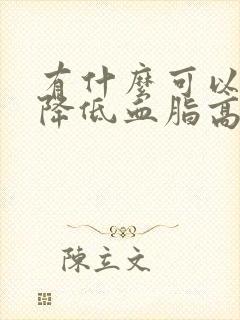 有什麼可以
降低血脂高
陳立文